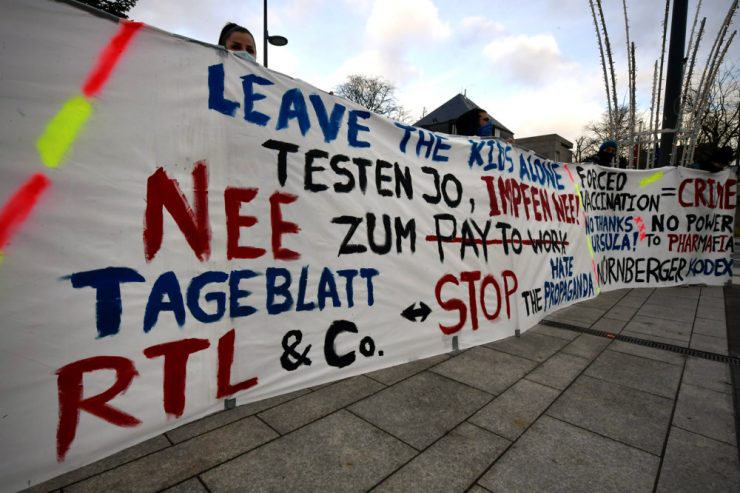 LEAVE THE KIDS ALONE
TESTEN JO, IMPFEN NEE!
NEE ZUM PAY TO WORK
TAGEBLATT
RTL & Co. ↔ STOP
HATE
THE PROPAGANDA
FORCED
VACCINATION = CRIME
NO THANKS
URSULA!
NO POWER
TO PHARMAFIA
NÜRNBERGER KODEX